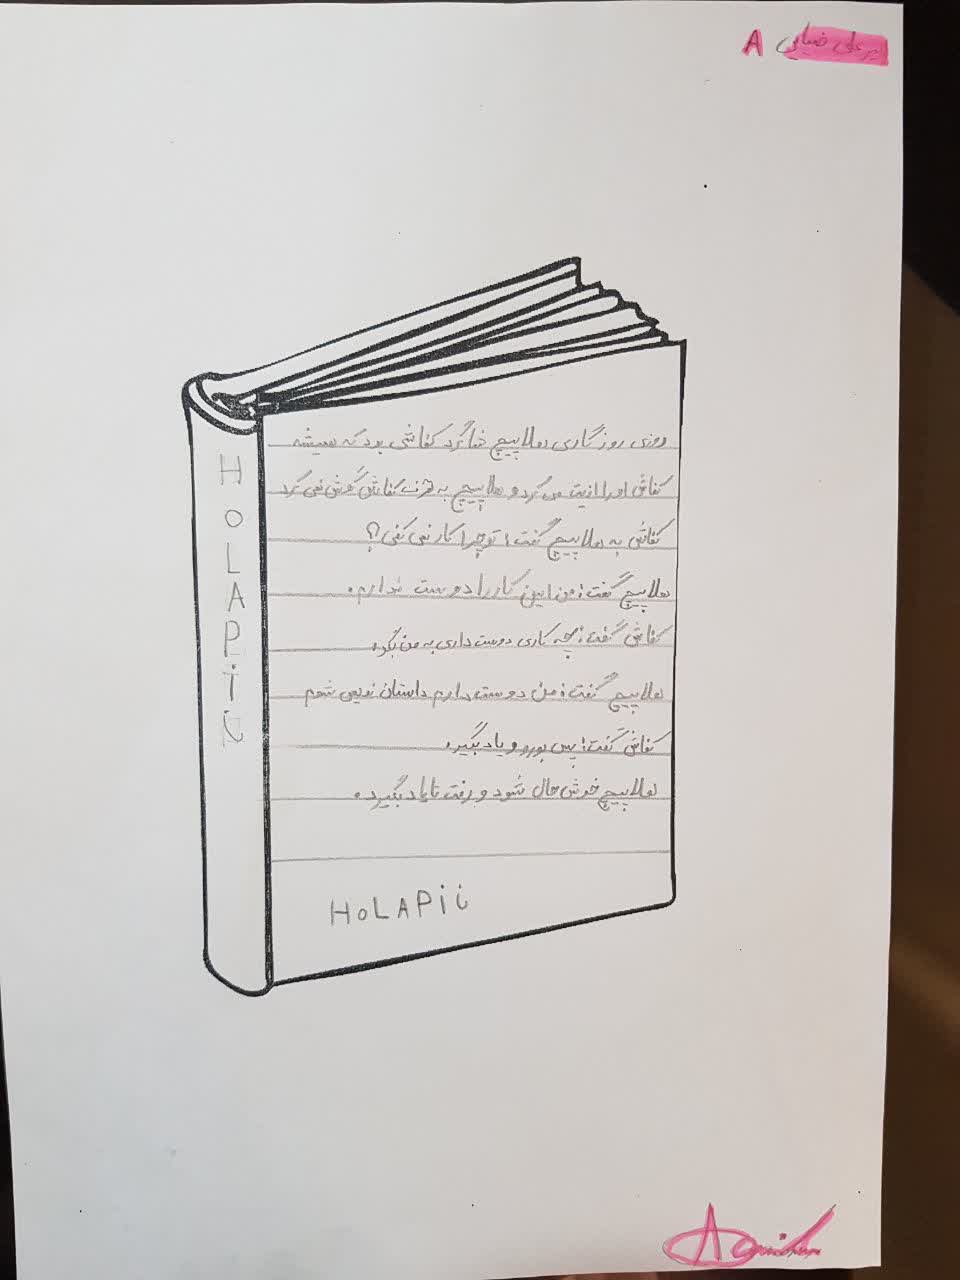 علی ضیایی A
روزی روزگاری هلاپیچ شاگرد کفاشی بود که همیشه
کفاش او را اذیت می کرد و هلاپیچ به حرف کفاش گوش نمی کرد
کفاش به هلاپیچ گفت: تو چرا کار نمی کنی؟
هلاپیچ گفت: من این کار را دوست ندارم.
کفاش گفت: چه کاری دوست داری به من بگو.
هلاپیچ گفت: من دوست دارم داستان نویس شوم
کفاش گفت: پس بورو و یاد بگیر.
هلاپیچ خوش حال شود و رفت تا یاد بگیرد.
HOLAPiز
HOLAPiز